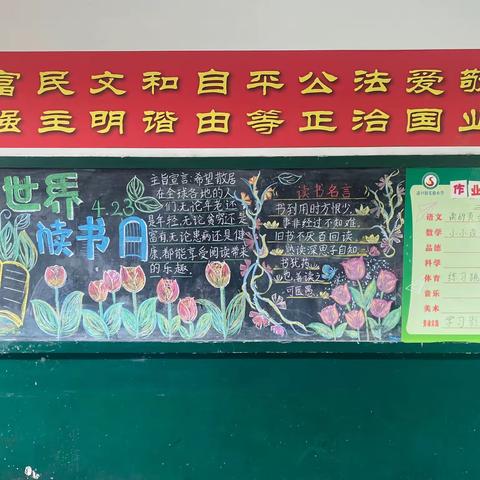 富民文和自平公法爱敬
强主明谐由等正治国业
世界
4.23
读书日
主旨宣言:希望散居
在全球各地的人
们无论年老还
是年轻,无论贫穷还是
富有,无论患病还是健
康,都能享受阅读带来
的乐趣
读书名言
书到用时方恨少,
事非经过不知难。
旧书不厌百回读,
熟读深思子自知。
书犹药
也,善读之
可医愚。
作业
语文
数学 小小
品德
科学
体育 练习
音乐
美术
学习